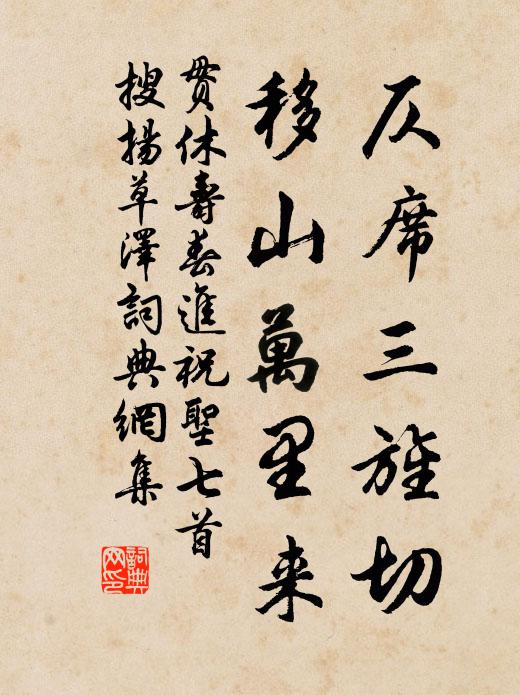 仄席三旌切
移山萬里来
貫休壽春進祝聖七首
搜揚草澤詞典網集
詞典网印